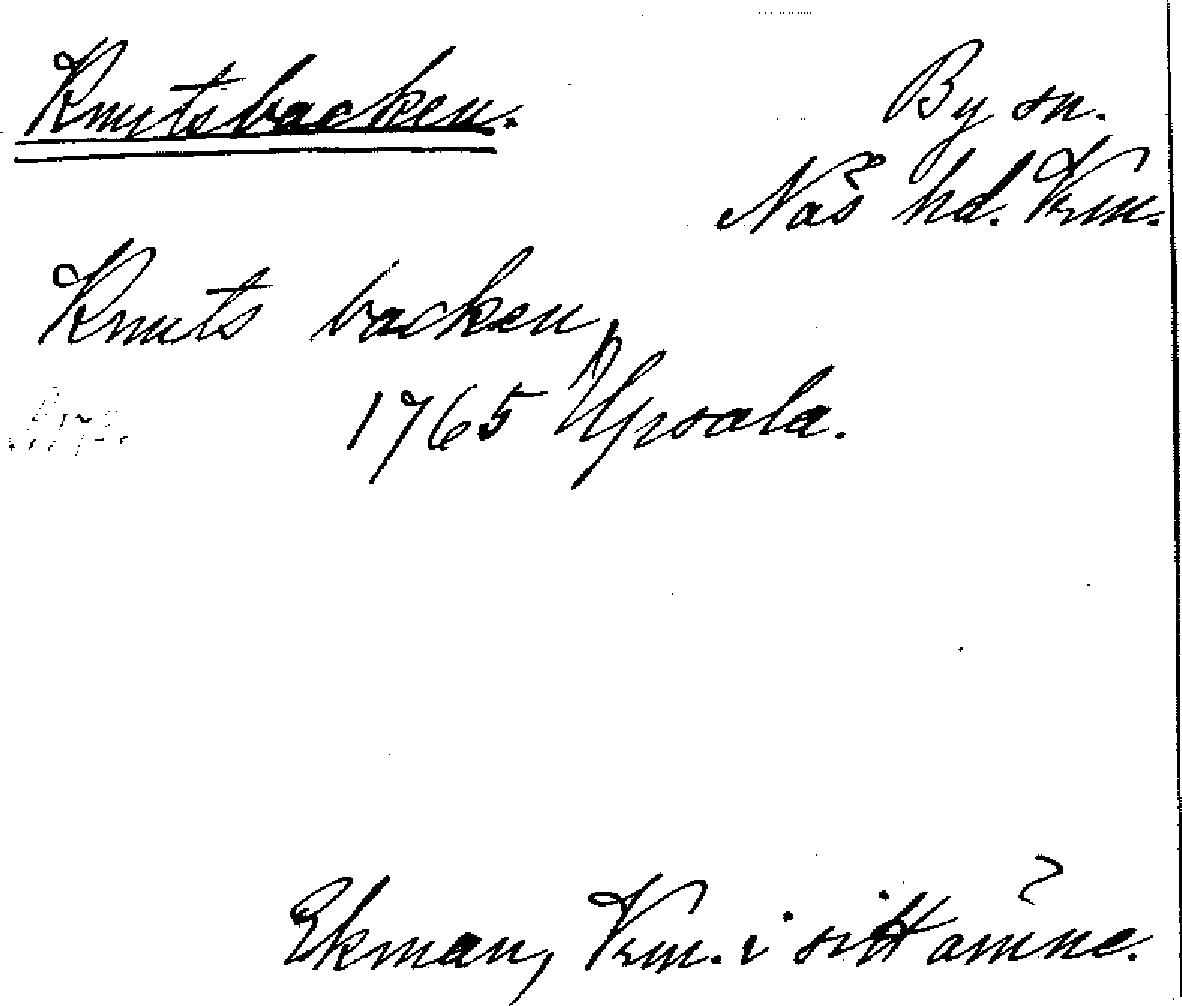 Knutsbacken.
By sn.
Näs hd. Vrm.
Knuts backen,
1765 Upsala.
Ekman, Vrm. i sitt ämne.